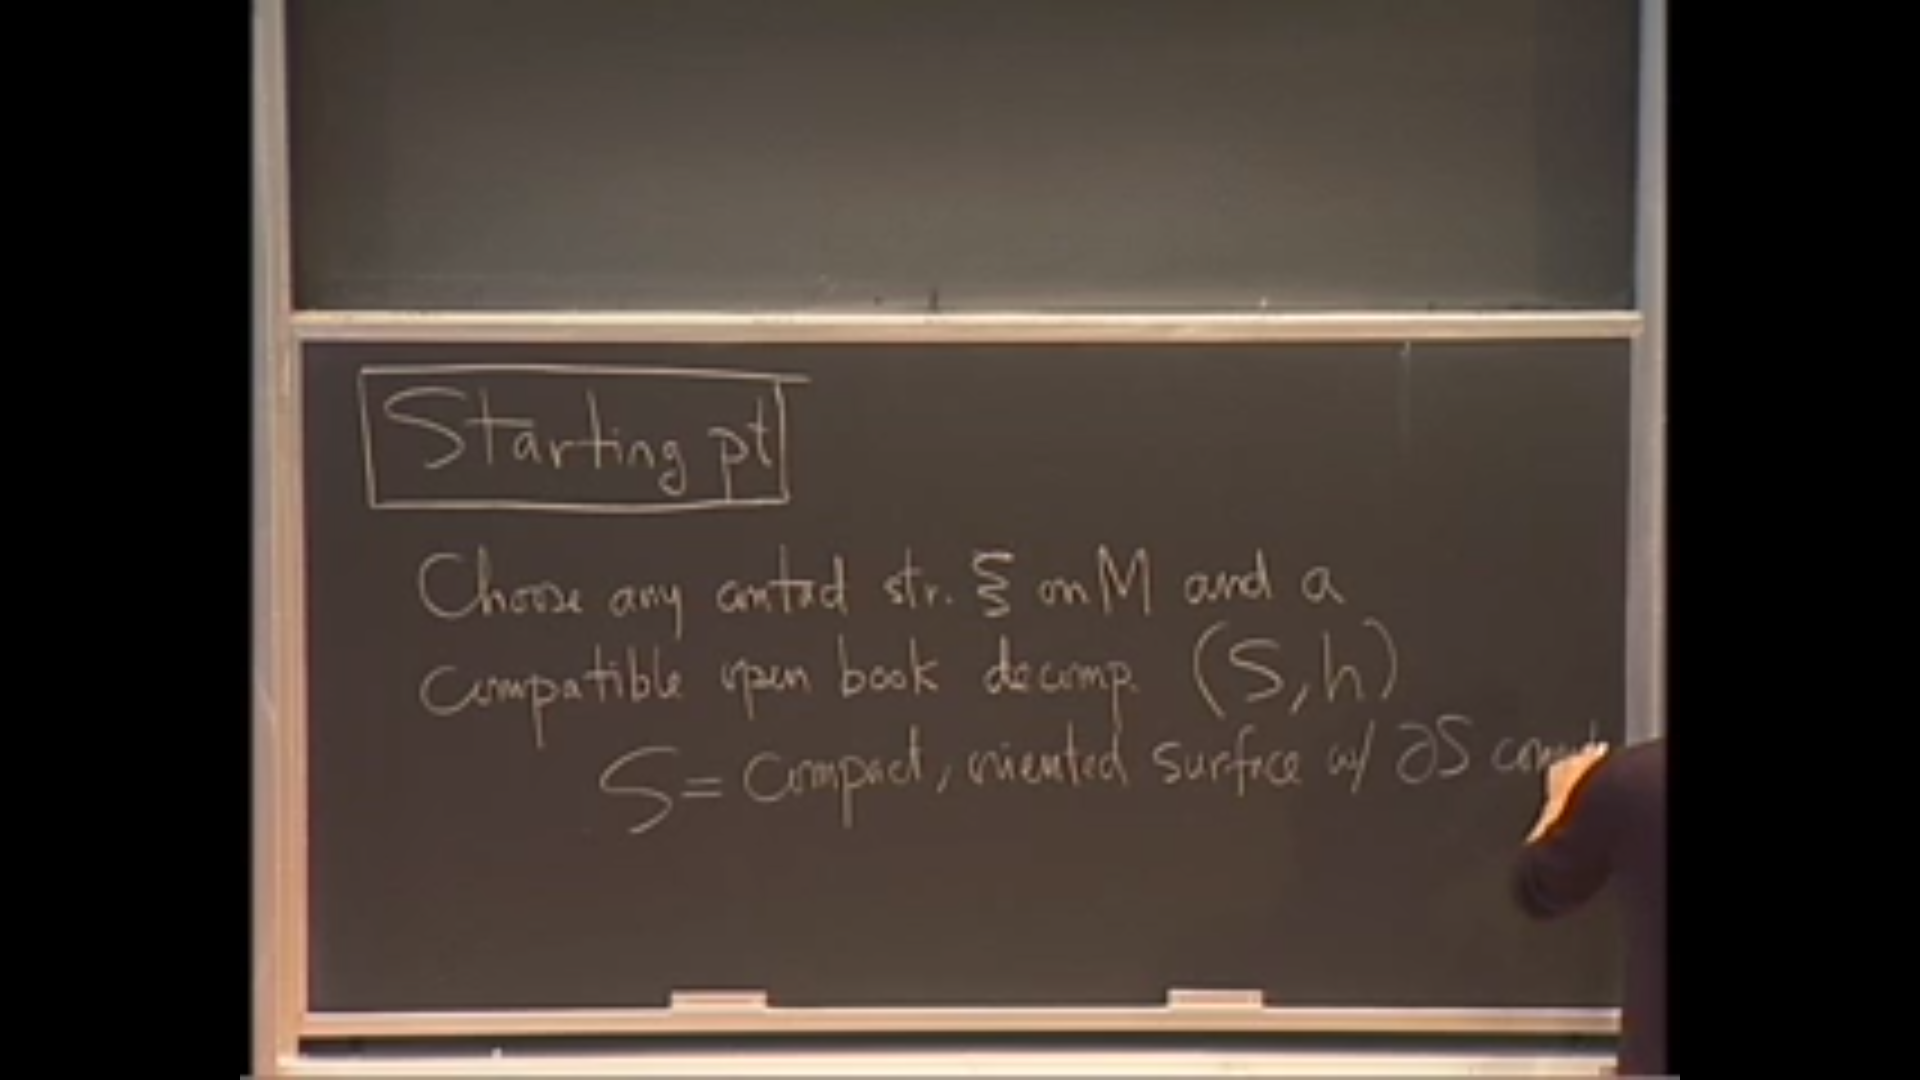 Starting pt
Choose any contact str. ξ on M and a
compatible open book decomp. (S, h)
S = compact, oriented surface w/ ∂S